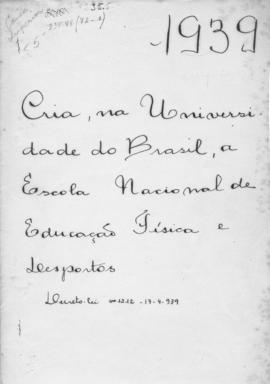 1939
Cria, na Universi-
dade do Brasil, a
Escola Nacional de
Educação Física e
Desportos
Decreto-lei nº 1212 - 17-4-939